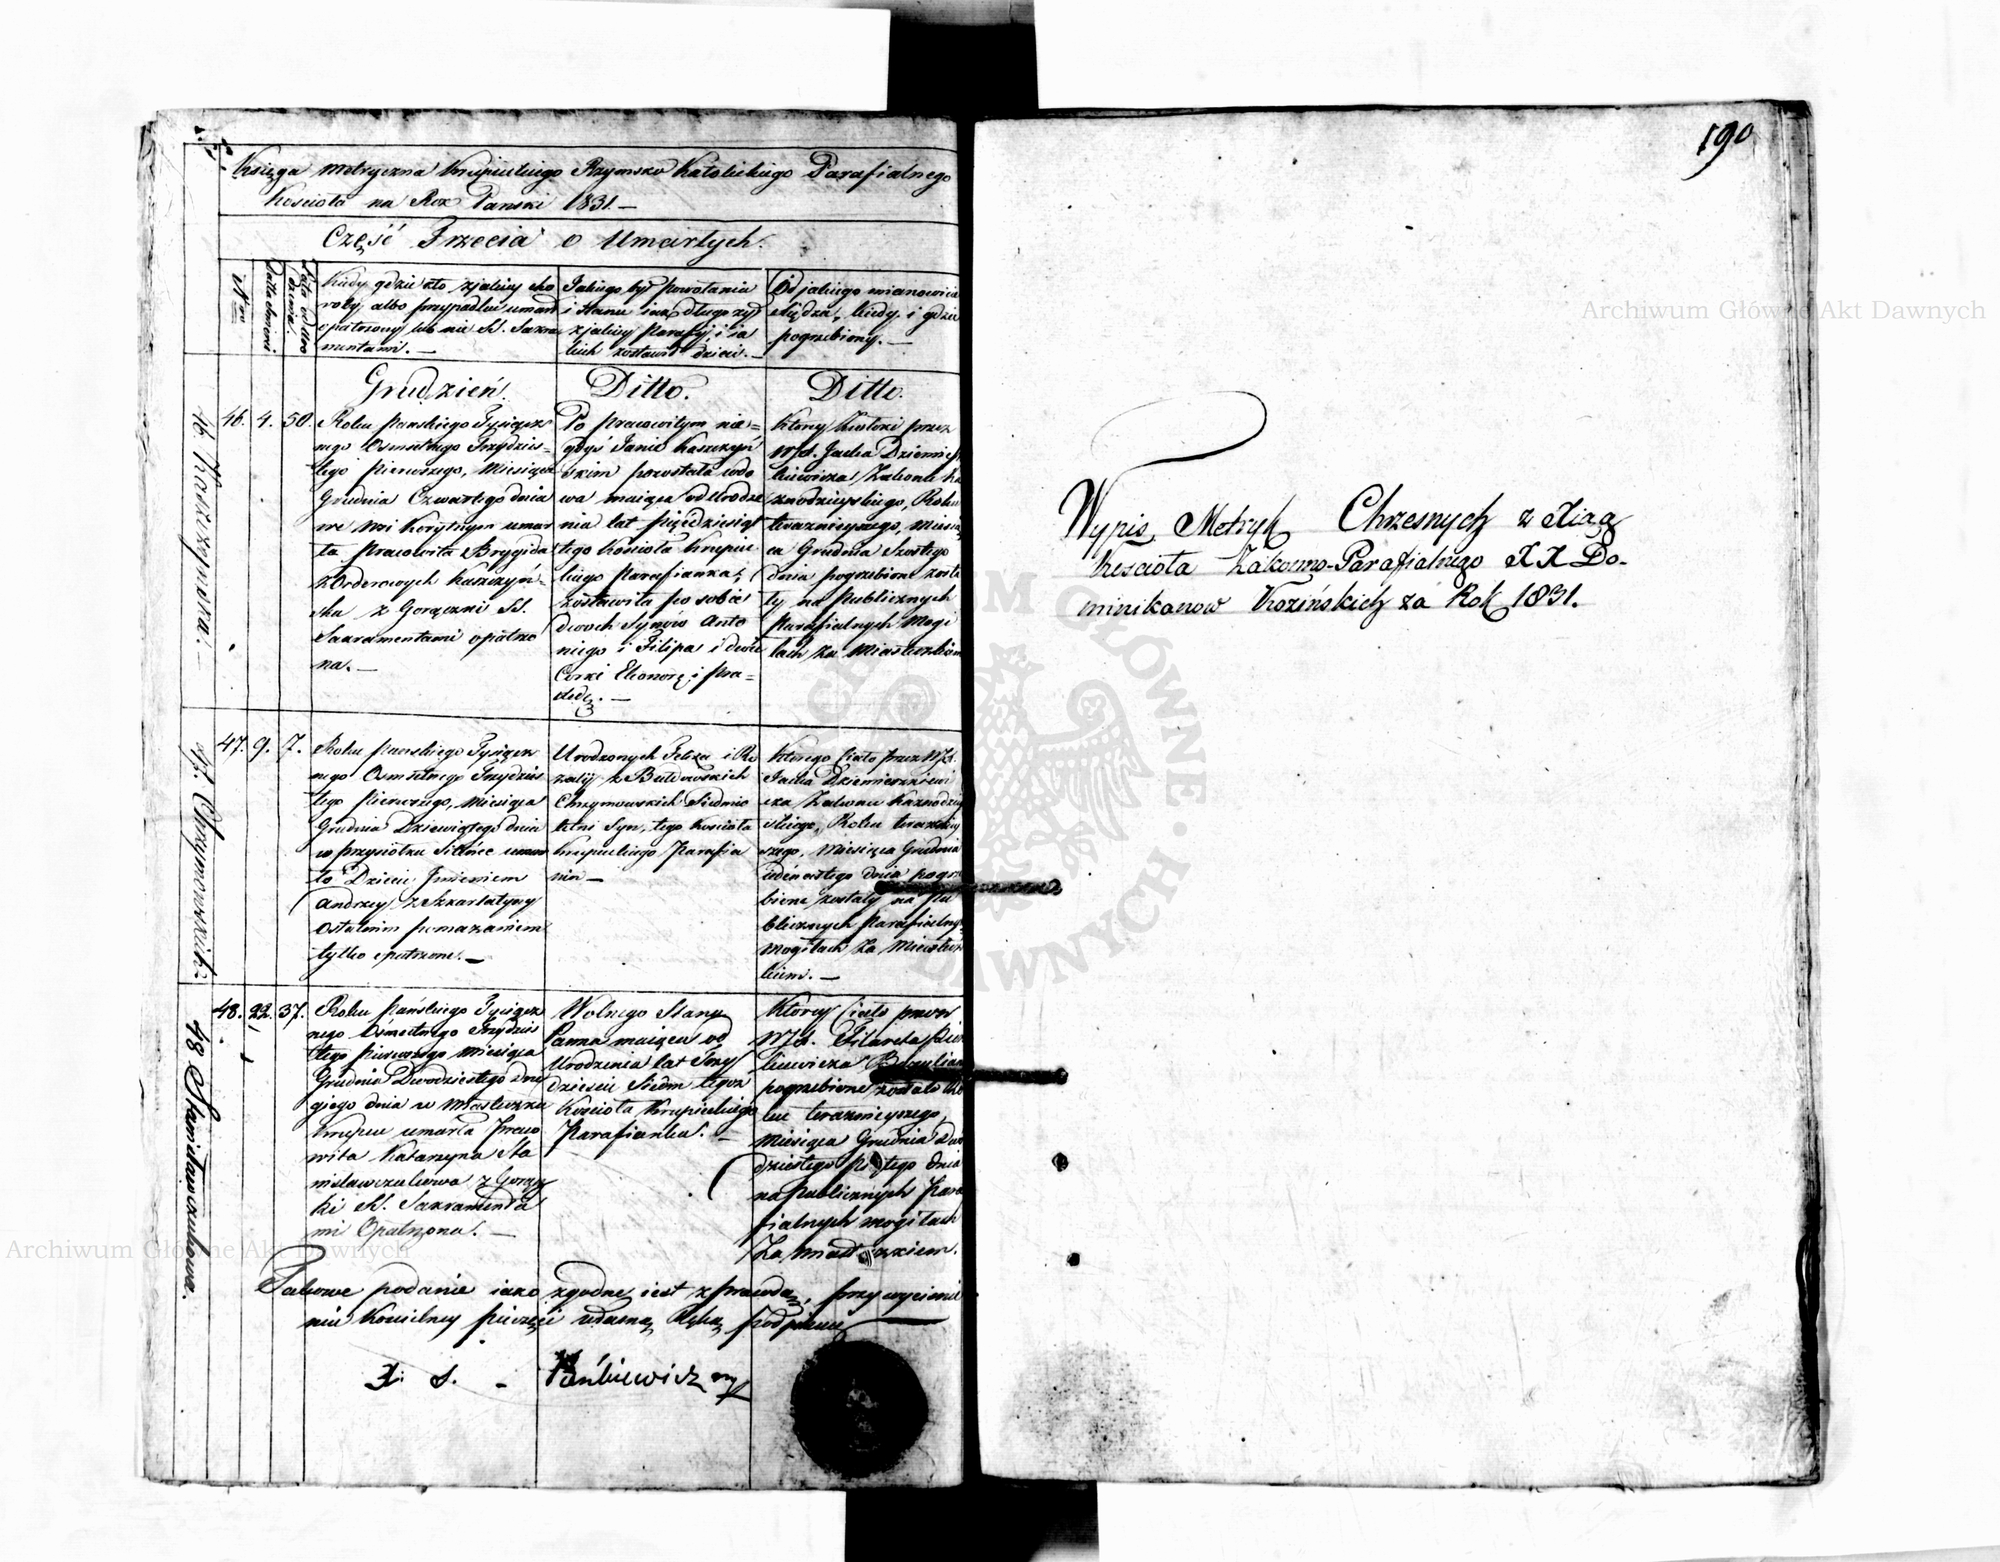 Księga Metryczna Krupieckiego Rzymsko Katolickiego Parafialnego
Kościoła na Rok Panski 1831. —
Część Trzecia o Umarłych.
Nro
Kiedy gdzie kto z jakiey cho
roby albo przypadku umarł
opatrzony lub nie SS. Sakra
mentami. —
Jakiego był powołania
i stanu iak długo żył
z jakiey Parafij, i ja
kich zostawił dzieci. —
Od jakiego mianowicie
Xiędza, kiedy i gdzie
pogrzebiony. —
Grudzień.
Ditto.
Ditto.
46 Kaszczynska. —
46. 4. 50.
Roku Pańskiego Tysiącz
nego Osmsetnego Trzydzies=
tego Pierwszego, Miesiąca
Grudnia Czwartego dnia
we wsi Korytnym umar
ła Pracowita Brygida
Kaszczyń=
ska z Gorączki SS.
Sakramentami opatrzo
na. —
Po Pracowitym nie=
gdyś Janie Kaszczyń
skim pozostała wdo
wa maiąca od Urodze
nia lat Pięćdziesiąt
tego Kościoła Krupie
ckiego Parafianka,
zostawiła po sobie
dwoch Synow Anto
niego i Filipa i dwie
Corki Eleonorę i Pra=
xedę. —
Ktorey Zwłoki przez
WJX. Jacka Dziemiesz
kiewicza Zakonu Ka
znodzieyskiego, Roku
teraznieyszego, Miesią
ca Grudnia Szostego
dnia pogrzebione zosta
ły na Publicznych
Parafialnych Mogi
łach za Miasteczkiem
47. Chrzymowski.
47. 9. 7.
Roku Pańskiego Tysiącz
nego Osmsetnego Trzydzies
tego Pierwszego, Miesiąca
Grudnia Dziewiątego dnia
w przysiołku umar
ło Dziecie Jmieniem
Andrzey z Szkarlatyny
Ostatnim pomazaniem
tylko opatrzone. —
Urodzonych Felixa i Ro
zalij z
Chrzymowskich Siedmio
letni Syn, tego Kościoła
Krupieckiego Parafia
nin —
Ktorego Ciało przez WJX.
Jacka Dziemieszkiewi
cza Zakonu Kaznodziey
skiego, Roku teraźniey
szego, Miesiąca Grudnia
dnia pogrze
bione zostały na Pu
blicznych Parafialnych
Mogiłach za Miastecz
kiem. —
48 Stanisławczukowa.
48. 22. 37.
Roku Pańskiego Tysiącz
nego Osmsetnego Trzydzies
tego Pierwszego Miesiąca
Grudnia Dwodziestego dru
giego dnia w Miasteczku
Krupcu umarła Praco
wita Katarzyna Sta
nisławczukowa z Gorącz
ki SS. Sakramenta
mi Opatrzona. —
Wolnego Stanu
Panna maiąca od
Urodzenia lat Trzy
dzieście Siedm tegoż
Kościoła Krupieckiego
Parafianka. —
Ktorey Ciało przez
WJX. Filareta
Bazylian
pogrzebione zostało Ro
ku teraznieyszego,
Miesiąca Grudnia Dwo
dziestego Piątego dnia
na Publicznych Para
fialnych mogiłach
Za miasteczkiem.
Takowe podanie iako zgodne iest z prawdą, przy wycisnie
niu Kościelney pieczęci własną Ręką podpisuię
190
Wypis Metryk Chrzesnych z Xiąg
Kościoła Zakonno-Parafialnego XX Do-
minikanow za Rok 1831.
Archiwum Główne Akt Dawnych
Archiwum Główne Akt Dawnych